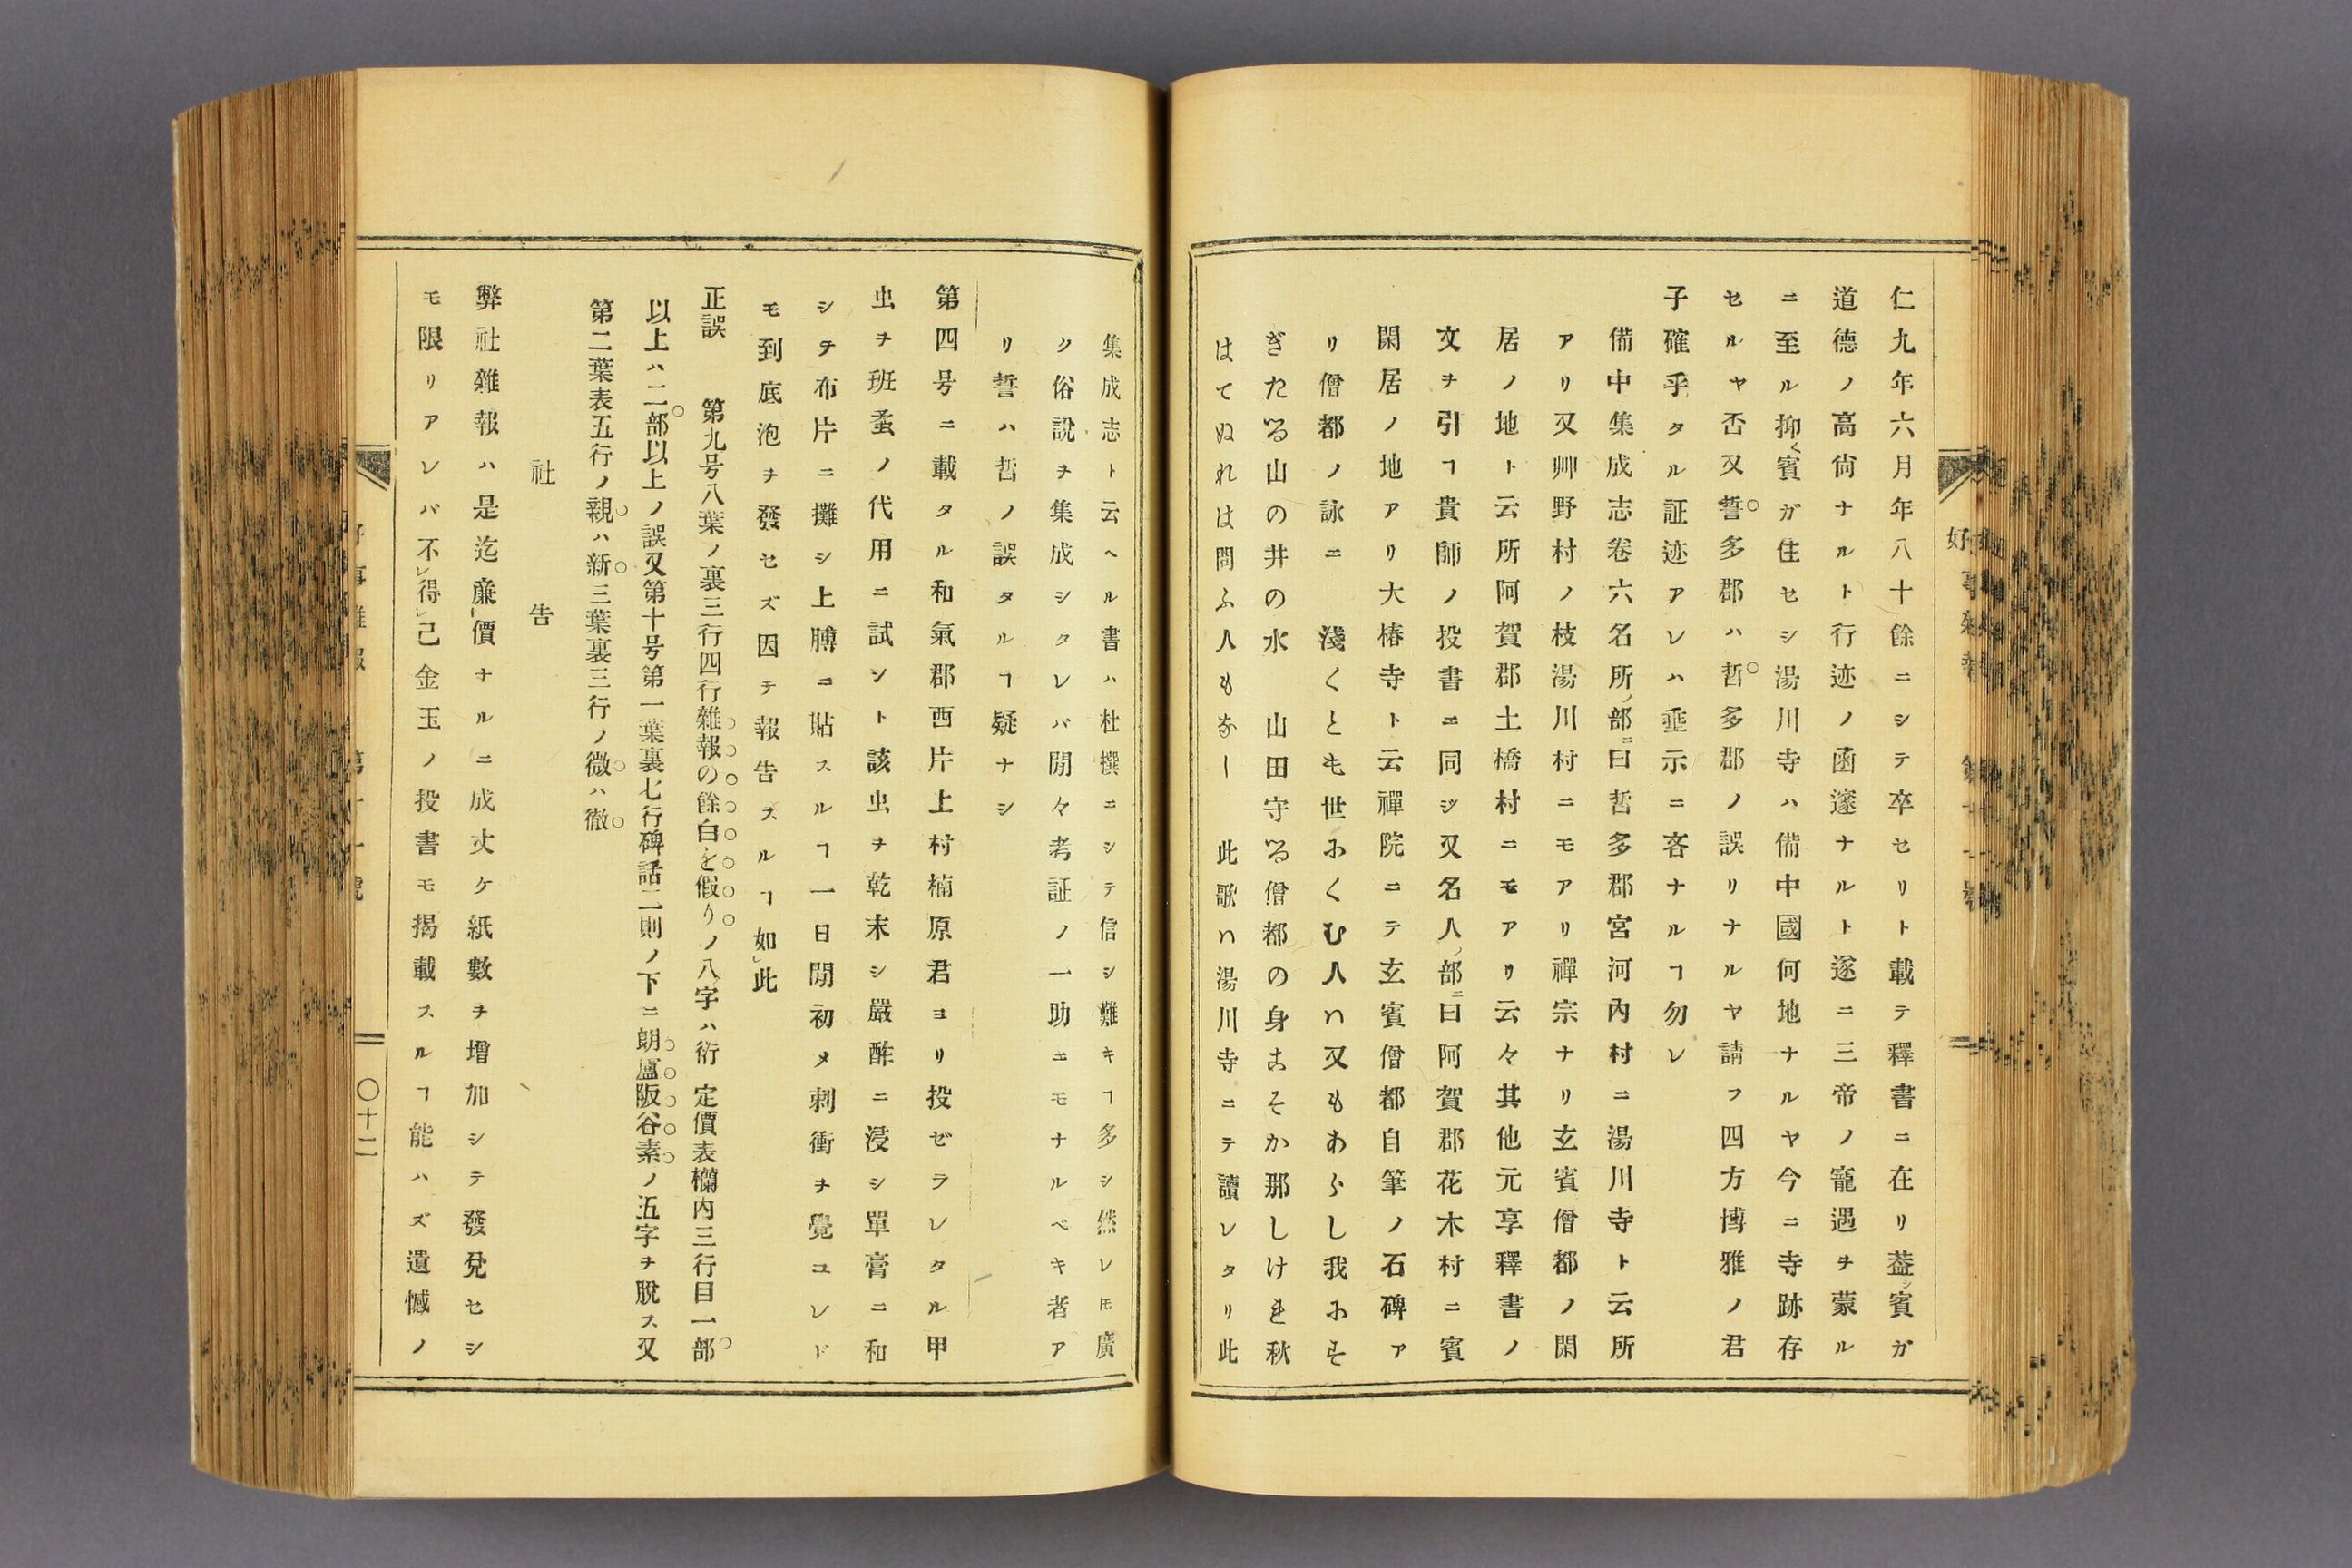 仁九年六月年八十餘ニシテ卒セリト載テ釋書ニ在リ蓋シ賓ガ
道德ノ高尙ナルト行迹ノ函邃ナルト遂ニ三帝ノ寵遇ヲ蒙ル
ニ至ル抑〻賓ガ住セシ湯川寺ハ備中國何地ナルヤ今ニ寺跡存
セルヤ否又誓多郡ハ哲多郡ノ誤リナルヤ請フ四方博雅ノ君
子確乎タル証迹アレハ垂示ニ吝ナルヿ勿レ
備中集成志卷六名所ノ部ニ曰哲多郡宮河內村ニ湯川寺ト云所
アリ又艸野村ノ枝湯川村ニモアリ禪宗ナリ玄賓僧都ノ閑
居ノ地ト云所阿賀郡土橋村ニモアリ云々其他元享釋書ノ
文ヲ引ヿ貴師ノ投書ニ同ジ又名人ノ部ニ曰阿賀郡花木村ニ賓
閑居ノ地アリ大椿寺ト云禪院ニテ玄賓僧都自筆ノ石碑ア
リ僧都ノ詠ニ　淺くとも世にくむ人ハ又もあらし我にそ
ぎたる山の井の水　山田守る僧都の身こそか那しけれ秋
はてぬれは問ふ人もなし　此歌ハ湯川寺ニテ讀レタリ此
集成志ト云ヘル書ハ杜撰ニシテ信シ難キヿ多シ然レ𪜈廣
ク俗說ヲ集成シタレバ間々考証ノ一助ニモナルベキ者ア
リ誓ハ哲ノ誤タルヿ疑ナシ
第四号ニ載タル和氣郡西片上村楠原君ヨリ投ゼラレタル甲
虫ヲ班蝥ノ代用ニ試シント該虫ヲ乾末シ嚴酢ニ浸シ單膏ニ和
シテ布片ニ攤シ上膊ニ貼スルヿ一日間初メ刺衝ヲ覺ユレド
モ到底泡ヲ發セズ因テ報告スルヿ如レ此
正誤　第九号八葉ノ裏三行四行雜報の餘白を假りノ八字ハ衍　定價表欄內三行目一部
以上ハ二部以上ノ誤又第十号第一葉裏七行碑話二則ノ下ニ朗廬阪谷素ノ五字ヲ脫ス又
第二葉表五行ノ親ハ新三葉裏三行ノ微ハ徹
社　告
弊社雜報ハ是迄廉價ナルニ成丈ケ紙數ヲ增加シテ發兌セシ
モ限リアレバ不レ得レ已金玉ノ投書モ揭載スルヿ能ハズ遺憾ノ
〇十二